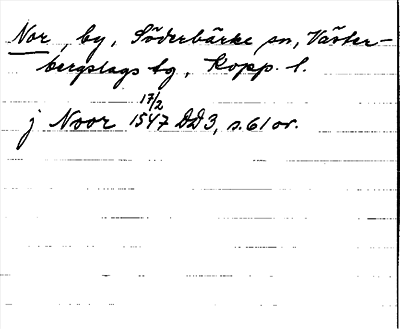 Nor, by, Söderbärke sn, Väster-
bergslags tg, Kopp. l.
17/2
j Noor 1547 DD3, s. 61 or.